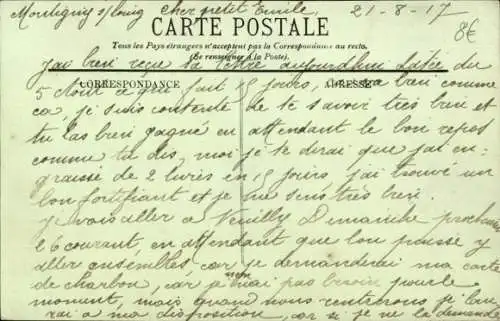 Montigny s/ Loing Cher petit Emile, 21-8-17
8€
CARTE POSTALE
Tous les Pays étrangers n'acceptent pas la Correspondance au recto.
(Se renseigner à la Poste).
J'ai bien reçu ta lettre aujourd'hui datée du
CORRESPONDANCE ADRESSE
5 Aout ce qui fait 15 jours, va bien comme
ca, je suis contente de te savoir très bien et
tu l'as bien gagné en attendant le bon repos
comme tu dis, moi je te dirai que j'ai en-
graissé de 2 livres en 15 jours j'ai trouvé un
bon fortifiant et je me sens très bien.
je vais aller a Neuilly Dimanche prochain
26 courant, en attendant que l'on puisse y
aller ensembles, car je demanderai ma carte
de charbon, car je n'ai pas besoin pour le
moment, mais quand nous rentrerons je l'au-
rai a ma disposition, car si je ne la demande